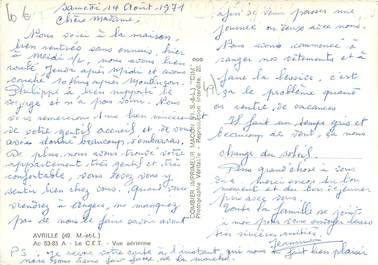 Samedi 14 Août 1971
Chère Madame,
Nous voici à la maison,
bien rentrés sans ennuis, hier
à midi ½, nous avons bien
roulé jeudi après midi et avons
couché 20 kms après Montluçon.
Philippe a bien supporté le
voyage et n'a pas vomi. Nous
vous remercions bien sincèrement
de votre gentil accueil et de vous
avoir donné beaucoup d'embarras.
De plus, nous avons trouvé votre
appartement très gentil et très
confortable, vous devez vous y
sentir bien chez vous. Quand vous
viendrez à Angers, ne manquez
pas de nous le faire savoir avant
AVRILLE (49. M.-et-L.)
Ac 53-63 A - Le C.E.T. - Vue aérienne
COMBIER IMPRIMEUR MACON (S.-&-L.) "CIM"
Photographie Véritable - Reproduction Interdite
afin de venir passer une
journée ou deux avec nous.
Nous avons commencé à
ranger nos vêtements et à
faire la lessive, c'est
ça le problème quand
on rentre de vacances
Il fait un temps gris et
beaucoup de vent, ça nous
change du soleil.
Encore merci du bon
moment et du bon déjeuner
pris avec vous.
Toute la famille se joint
à moi pour vous envoyer leurs
très sincères amitiés.
PS : Je reçois votre carte à l'instant qui nous a fait bien plaisir